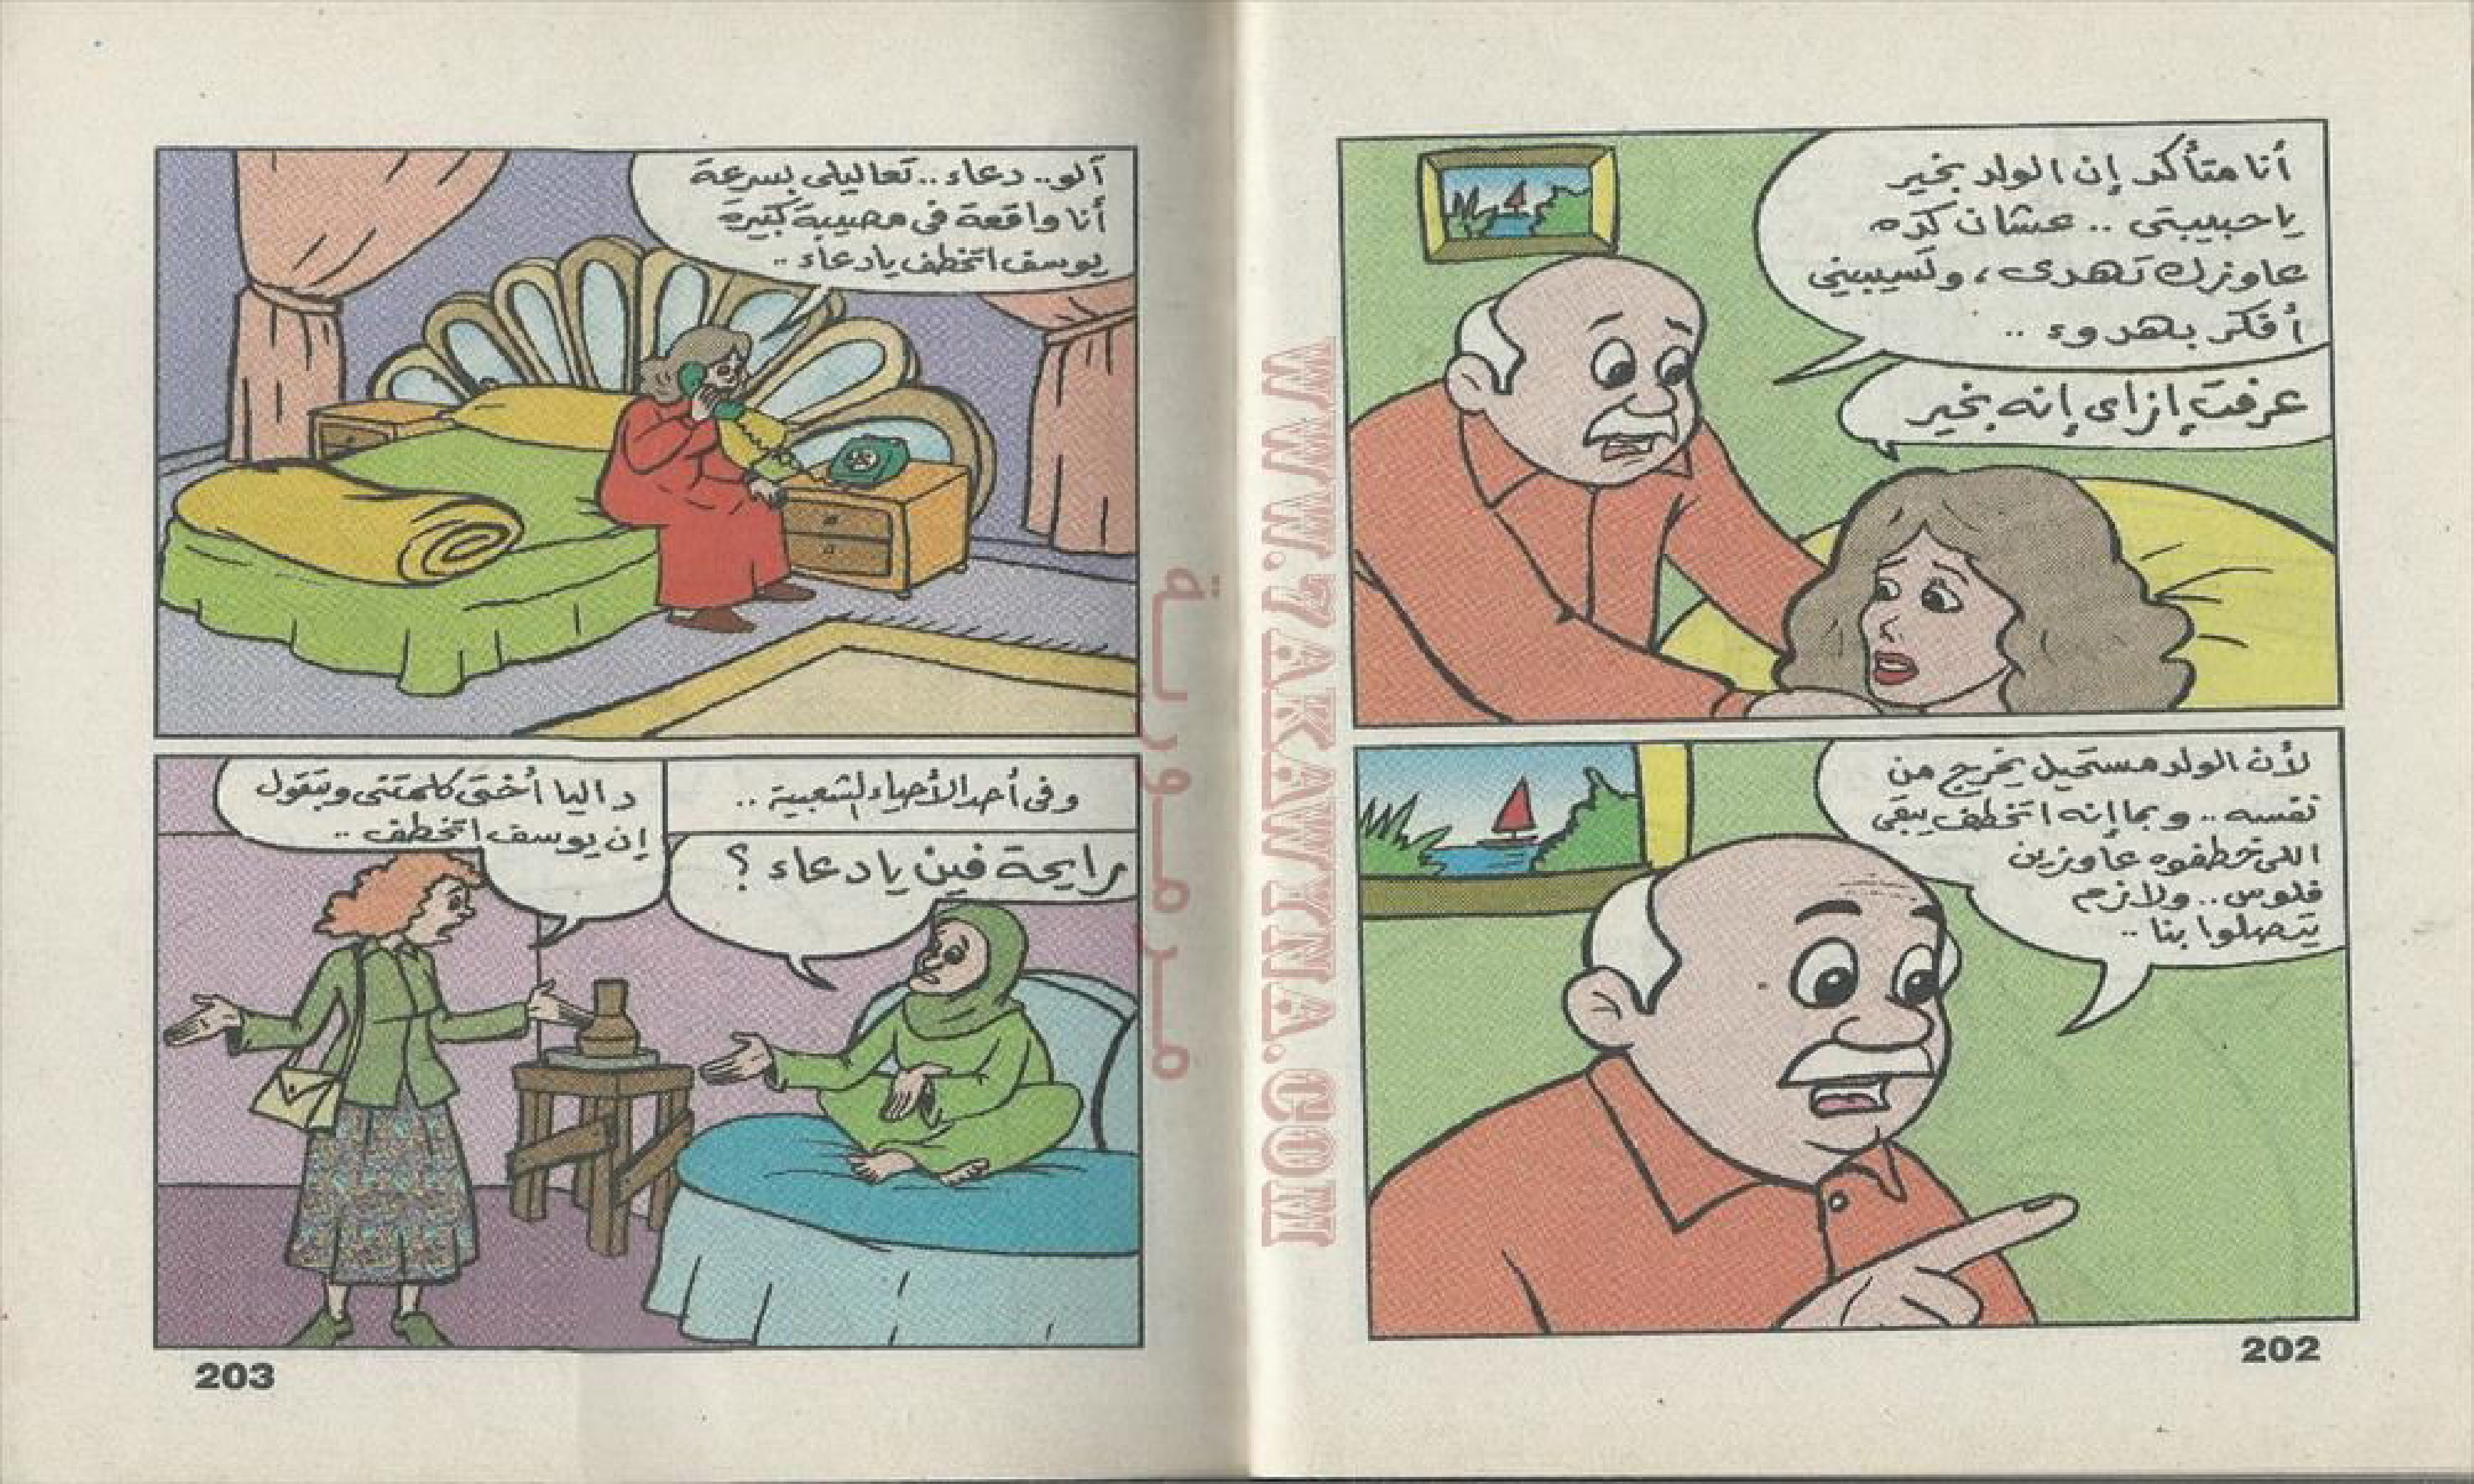 أنا متأكد إن الولد بخير
ياحبيبتى .. عشان كده
عاوزك تهدى، وتسيبينى
أفكر بهدوء ..
عرفت إزاى إنه بخير
لأن الولد مستحيل يخرج من
نفسه .. وبما إنه اتخطف يبقى
اللى خطفوه عاوزين
فلوس .. ولازم
يتصلوا بنا ..
202
آلو .. دعاء .. تعاليلى بسرعة
أنا واقعة فى مصيبة كبيرة
يوسف اتخطف يادعاء ..
وفى أحد الأحياء الشعبية ..
رايحة فين يادعاء ؟
داليا أختى كلمتنى وبتقول
إن يوسف اتخطف ..
203
WWW.7AKAWYNA.COM
مرمورية